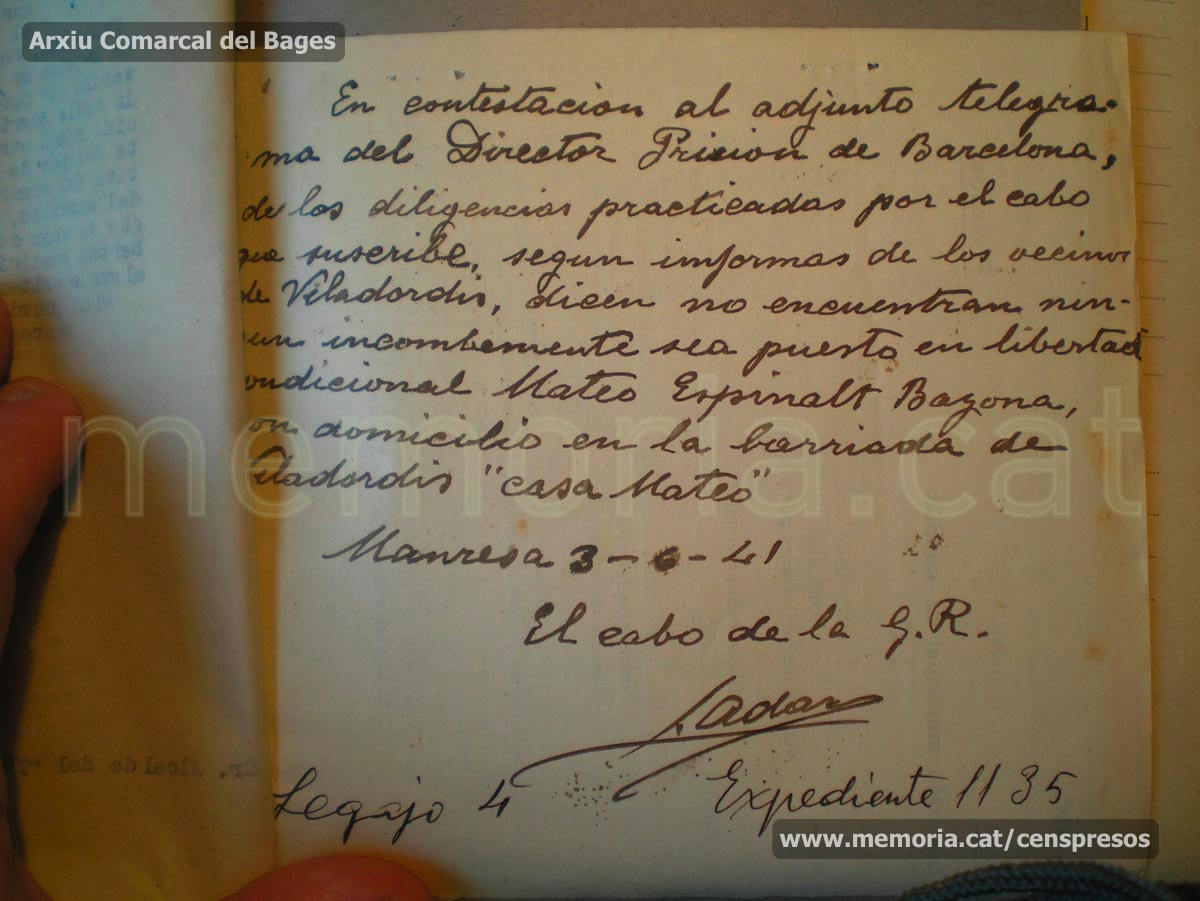 Arxiu Comarcal del Bages
En contestacion al adjunto telegra-
ma del Director Prision de Barcelona,
de las diligencias practicadas por el cabo
que suscribe, segun informas de los vecinos
de Viladordis, dicen no encuentran nin-
un incombemente sea puesto en libertad
ondicional Mateo Espinalt Bagona,
on domicilio en la barriada de
iladordis "casa Mateo"
Manresa 3-6-41
El cabo de la G.R.
Legajo 4 Expediente 1135
Sr. Alcalde del
memoria.cat
www.memoria.cat/censpresos